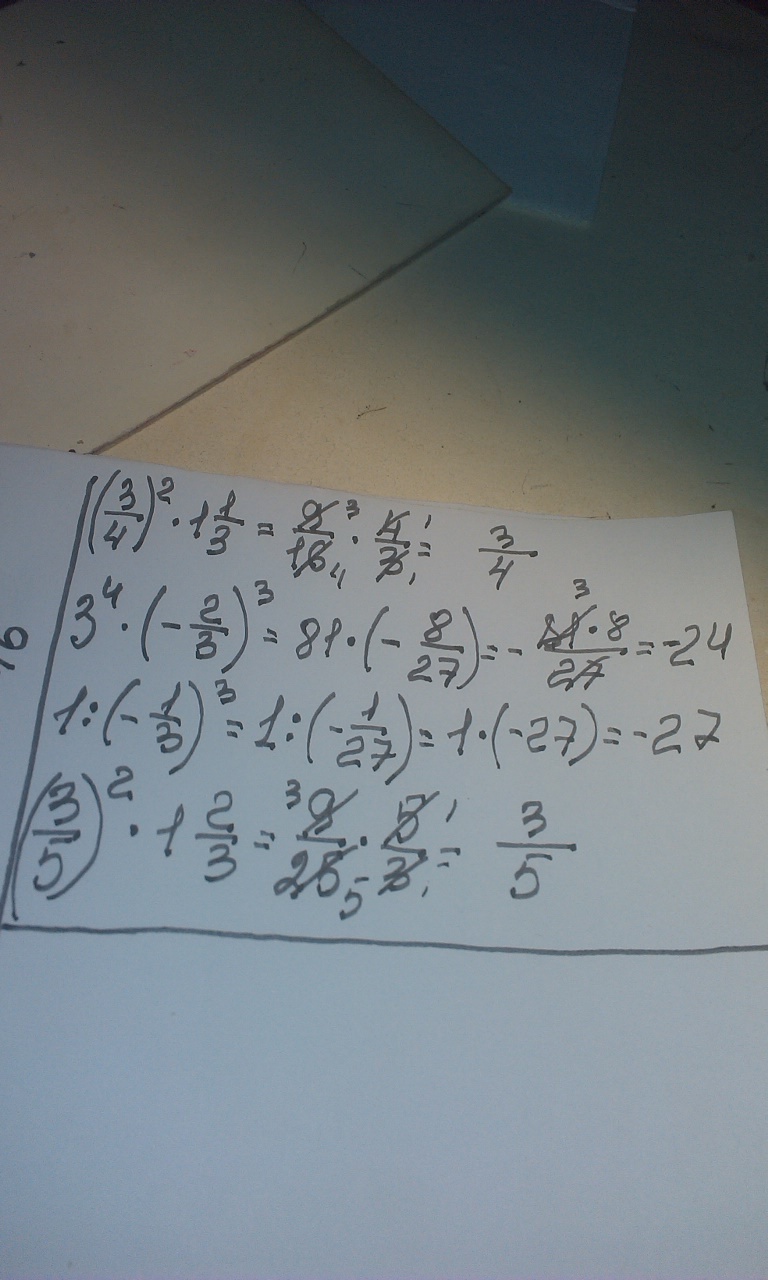 (3/4)² · 1 1/3 = 9/16 · 4/3 = 3/4
3⁴ · (- 2/3)³ = 81 · (- 8/27) = - 81·8/27 = -24
1 : (- 1/3)³ = 1 : (- 1/27) = 1 · (-27) = -27
(3/5)² · 1 2/3 = 9/25 · 5/3 = 3/5